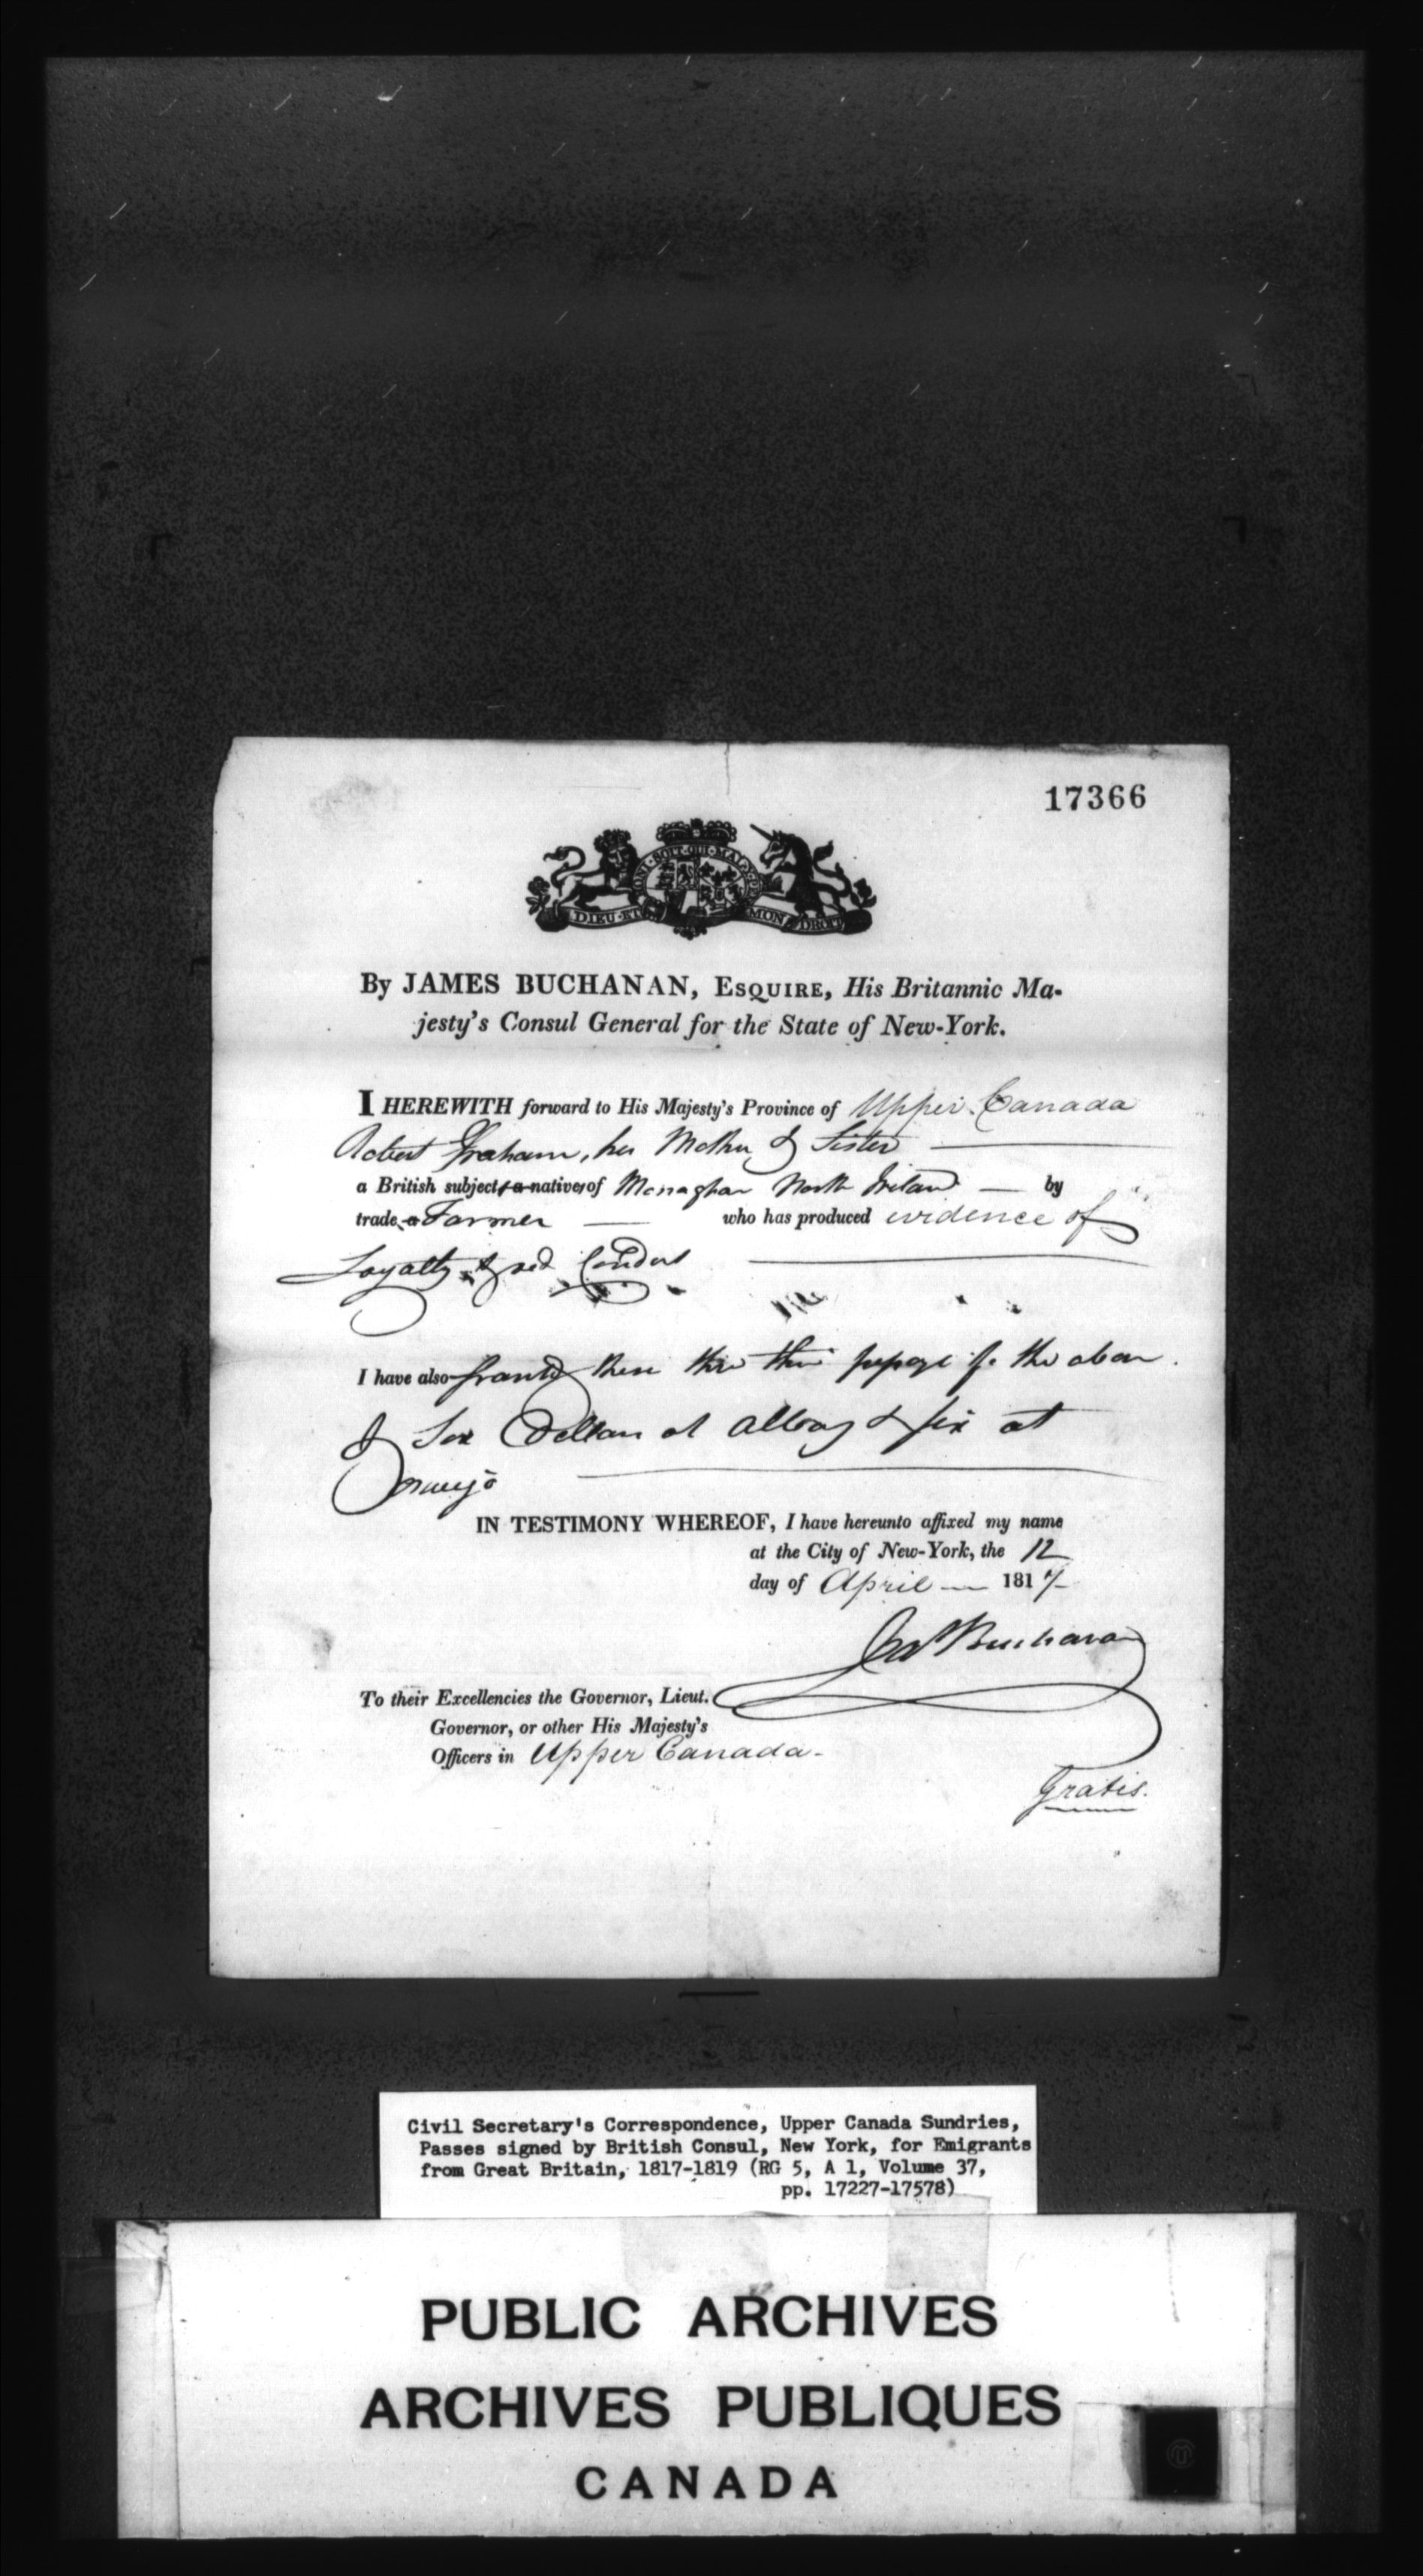 17366
HONI·SOIT·QUI·MAL·Y·PE
DIEU·ET MON DROIT
By JAMES BUCHANAN, ESQUIRE, His Britannic Ma-
jesty's Consul General for the State of New-York.
I HEREWITH forward to His Majesty's Province of Upper Canada
Robert Graham, his Mother & Sister
a British subjects a natives of Monaghan North Ireland — by
trade a Farmer — who has produced evidence of
Loyalty & good Conduct
I have also granted these three their passage fr the above
& Six Dollars at Albany & six at
IN TESTIMONY WHEREOF, I have hereunto affixed my name
at the City of New-York, the 12
day of April — 1817
Jas Buchanan
To their Excellencies the Governor, Lieut.
Governor, or other His Majesty's
Officers in Upper Canada.
Gratis.
Civil Secretary's Correspondence, Upper Canada Sundries,
Passes signed by British Consul, New York, for Emigrants
from Great Britain, 1817-1819 (RG 5, A 1, Volume 37,
pp. 17227-17578)
PUBLIC ARCHIVES
ARCHIVES PUBLIQUES
CANADA